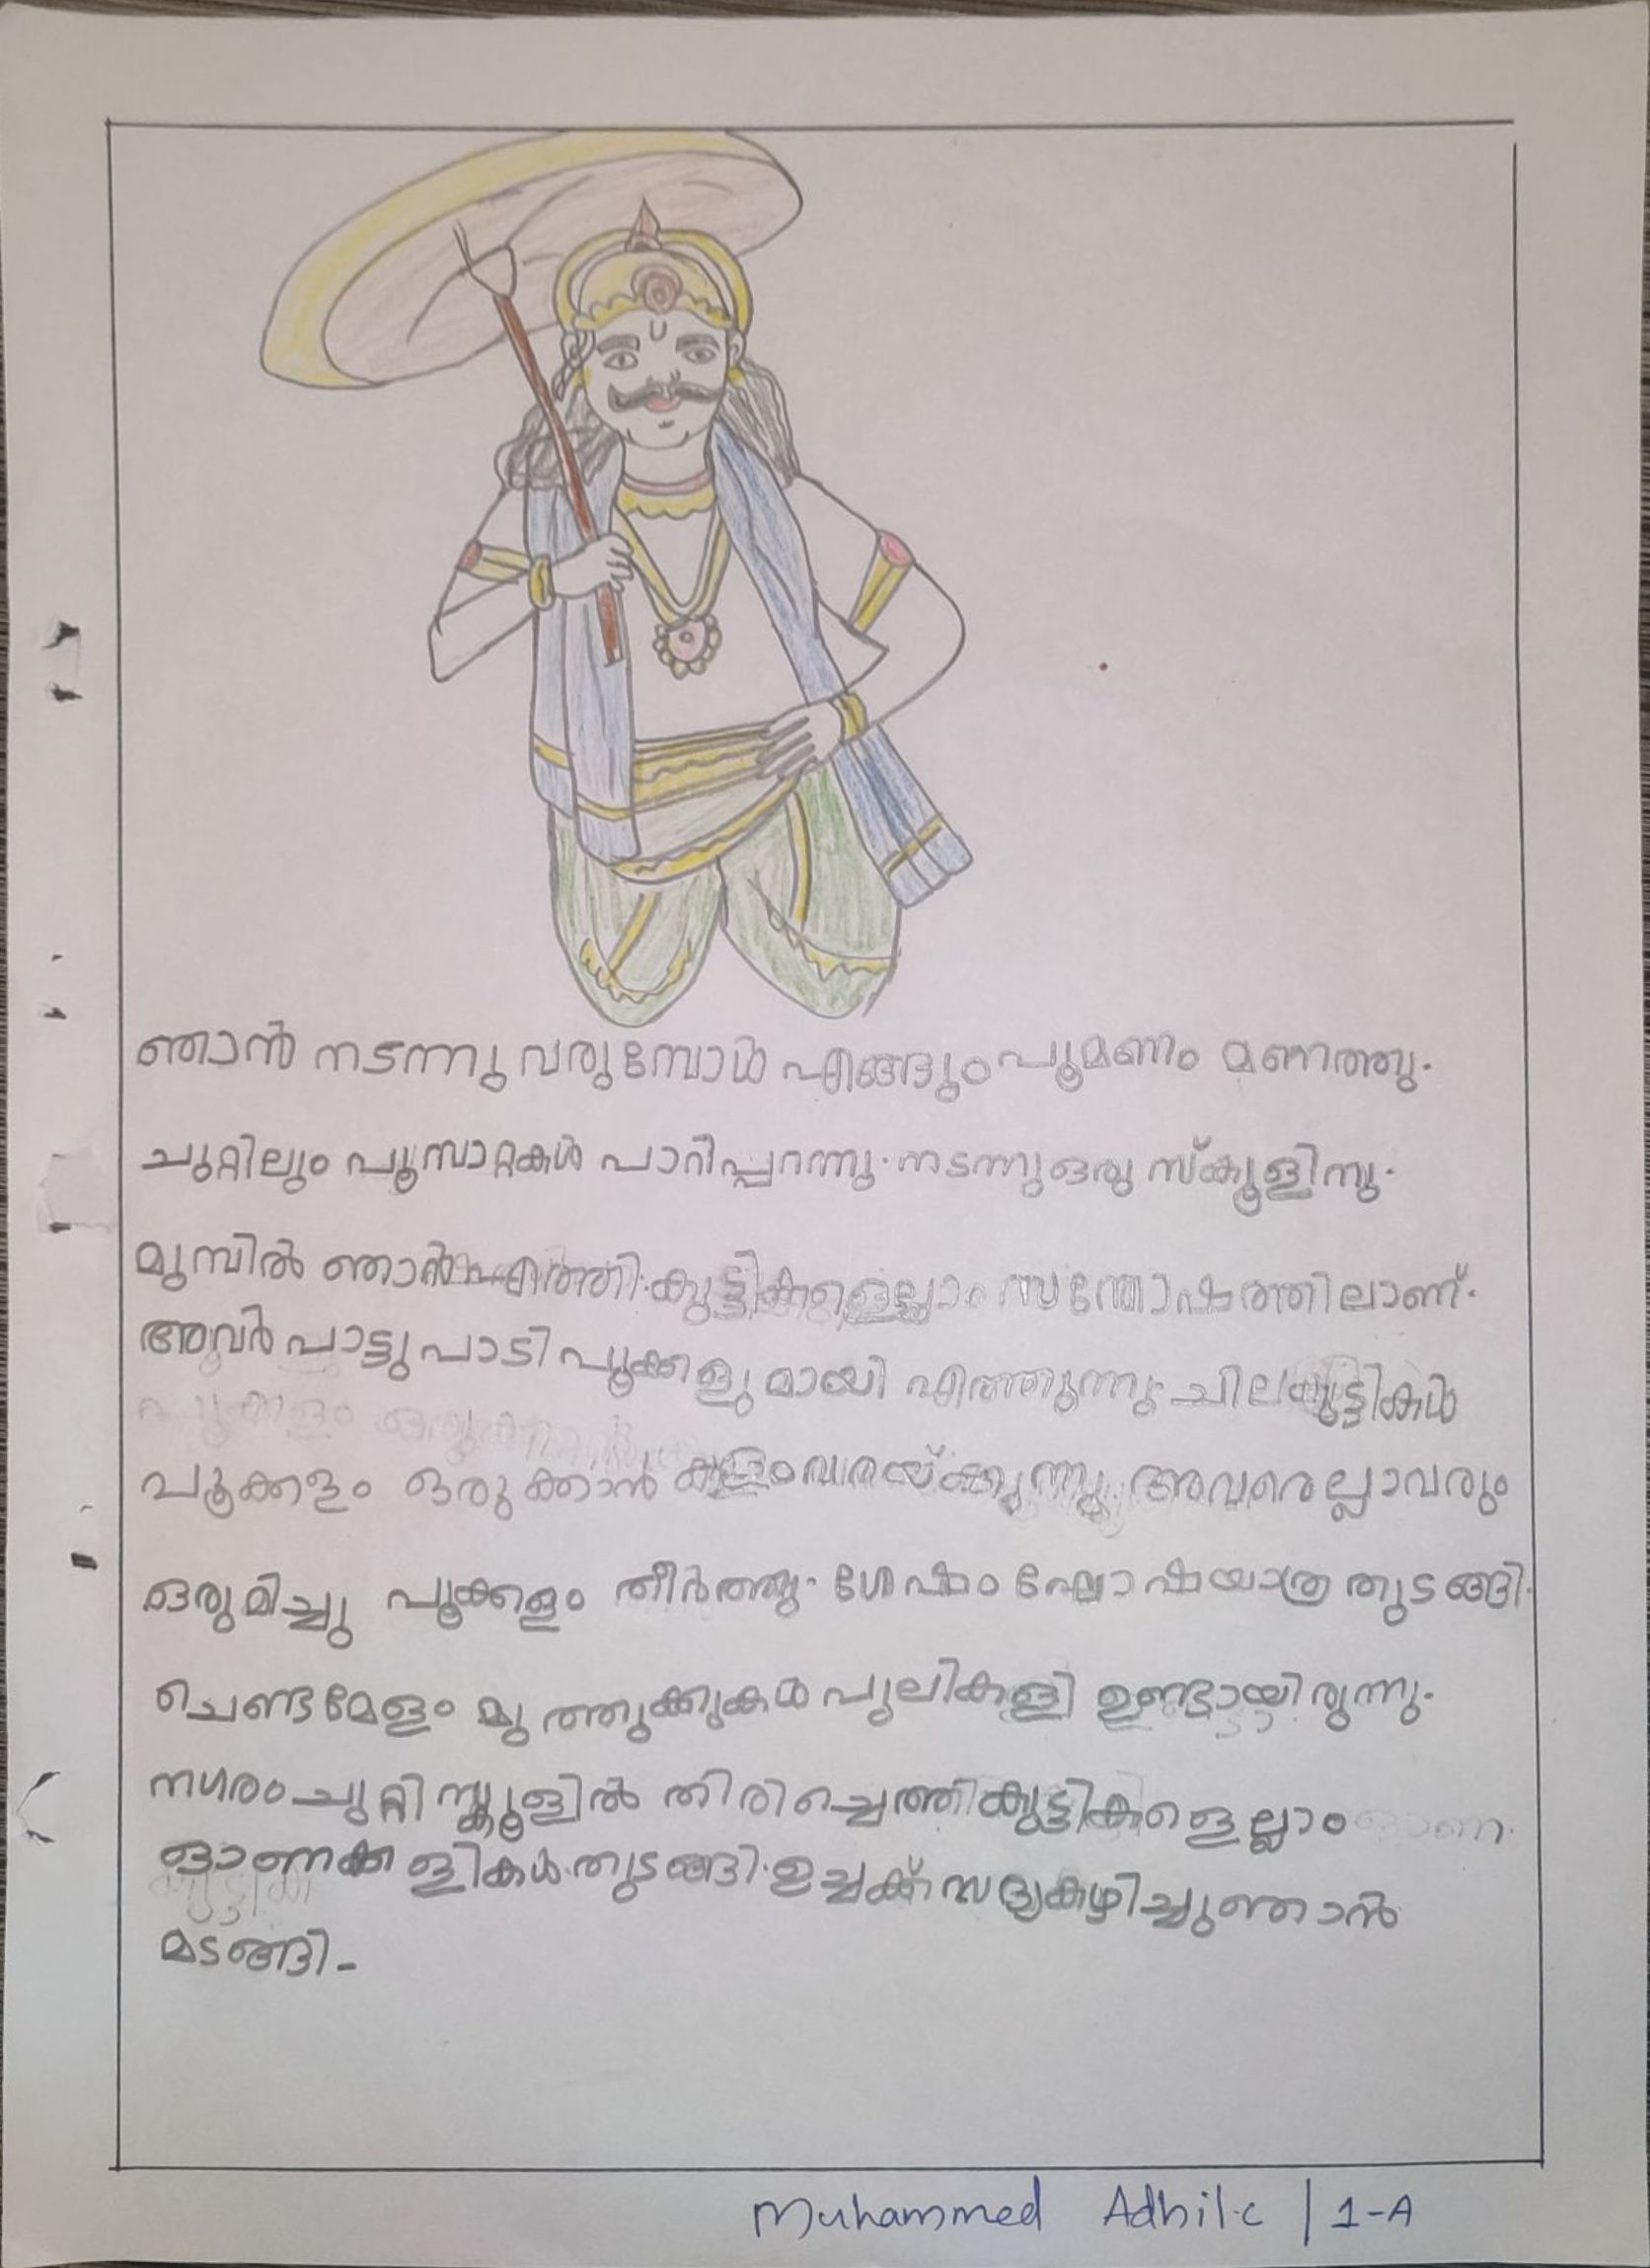 ഞാൻ നടന്നു വരുമ്പോൾ എങ്ങും പൂമണം മണത്തു.
ചുറ്റിലും പൂമ്പാറ്റകൾ പാറിപ്പറന്നു. നടന്നു ഒരു സ്കൂളിനു.
മുമ്പിൽ ഞാൻ എത്തി. കുട്ടികളെല്ലാം സന്തോഷത്തിലാണ്.
അവർ പാട്ടു പാടി പൂക്കളുമായി എത്തുന്നു. ചില കുട്ടികൾ
പൂക്കളം ഒരുക്കാൻ കളം വരയ്ക്കുന്നു. അവരെല്ലാവരും
ഒരുമിച്ചു പൂക്കളം തീർത്തു. ശേഷം ഘോഷയാത്ര തുടങ്ങി.
ചെണ്ടമേളം മുത്തുക്കുകൾ പുലികളി ഉണ്ടായിരുന്നു.
നഗരം ചുറ്റി സ്കൂളിൽ തിരിച്ചെത്തി കുട്ടികളെല്ലാം
ഓണക്കളികൾ തുടങ്ങി. ഉച്ചക്ക് സദ്യകഴിച്ചു ഞാൻ
മടങ്ങി-
Muhammed Adhil.c | 1-A